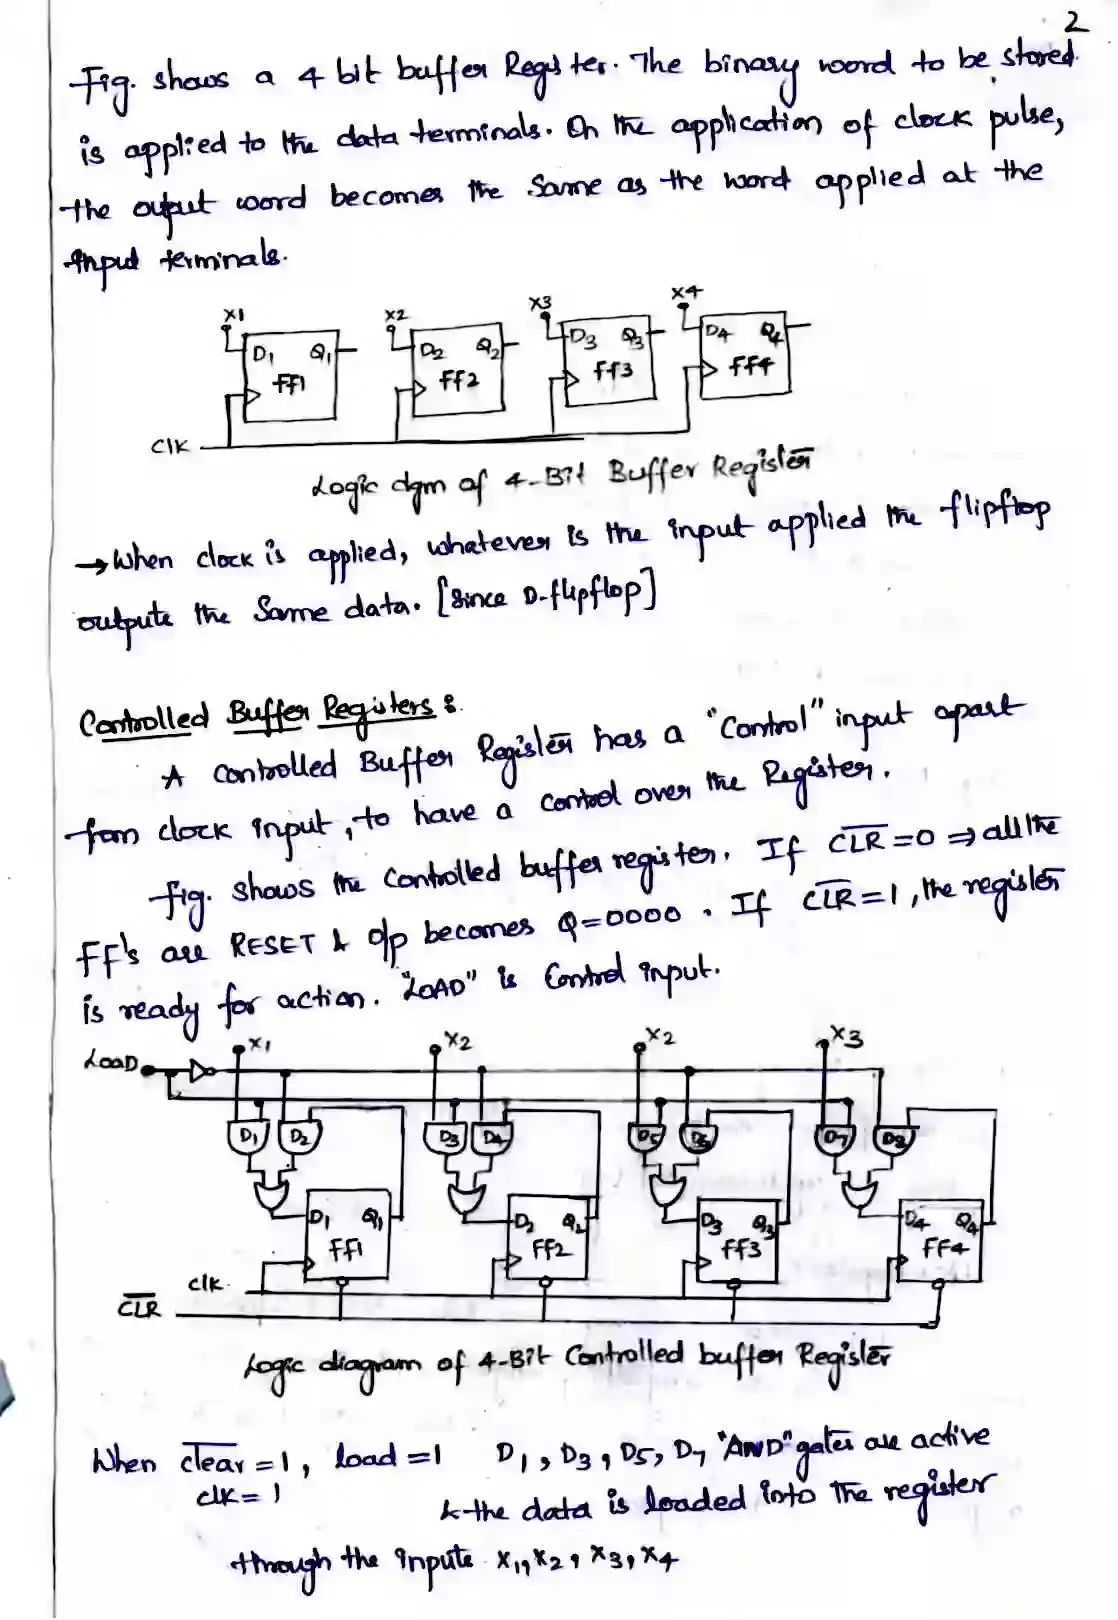 2
Fig. shows a 4 bit buffer Register. The binary word to be stored.
is applied to the data terminals. On the application of clock pulse,
the output word becomes the same as the word applied at the
input terminals.
X1 X2 X3 X4
D1 Q1 D2 Q2 D3 Q3 D4 Q4
FF1 FF2 FF3 FF4
Clk
Logic dgm of 4-Bit Buffer Register
→ When clock is applied, whatever is the input applied the flipflop
outputs the same data. [Since D-flipflop]
Controlled Buffer Registers :
A controlled Buffer Register has a "Control" input apart
from clock input, to have a control over the Register.
fig. shows the Controlled buffer register. If C̅L̅R̅ =0 ⇒ all the
FF's are RESET & o/p becomes Q=0000. If C̅L̅R̅=1, the register
is ready for action. "LOAD" is Control input.
LOAD X1 X2 X2 X3
D1 D2 D3 D4 D5 D6 D7 D8
D1 Q1 D2 Q2 D3 Q3 D4 Q4
FF1 FF2 FF3 FF4
clk.
C̅L̅R̅
Logic diagram of 4-Bit Controlled buffer Register
When c̅l̅e̅a̅r̅ =1, load =1 D1, D3, D5, D7 "AND" gates are active
clk= 1 & the data is loaded into the register
through the inputs X1, X2, X3, X4